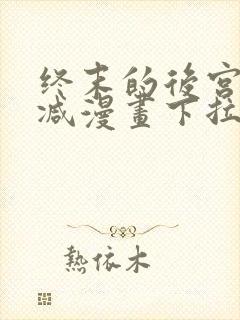 终末的後宫
减漫畫下拉
熱依木